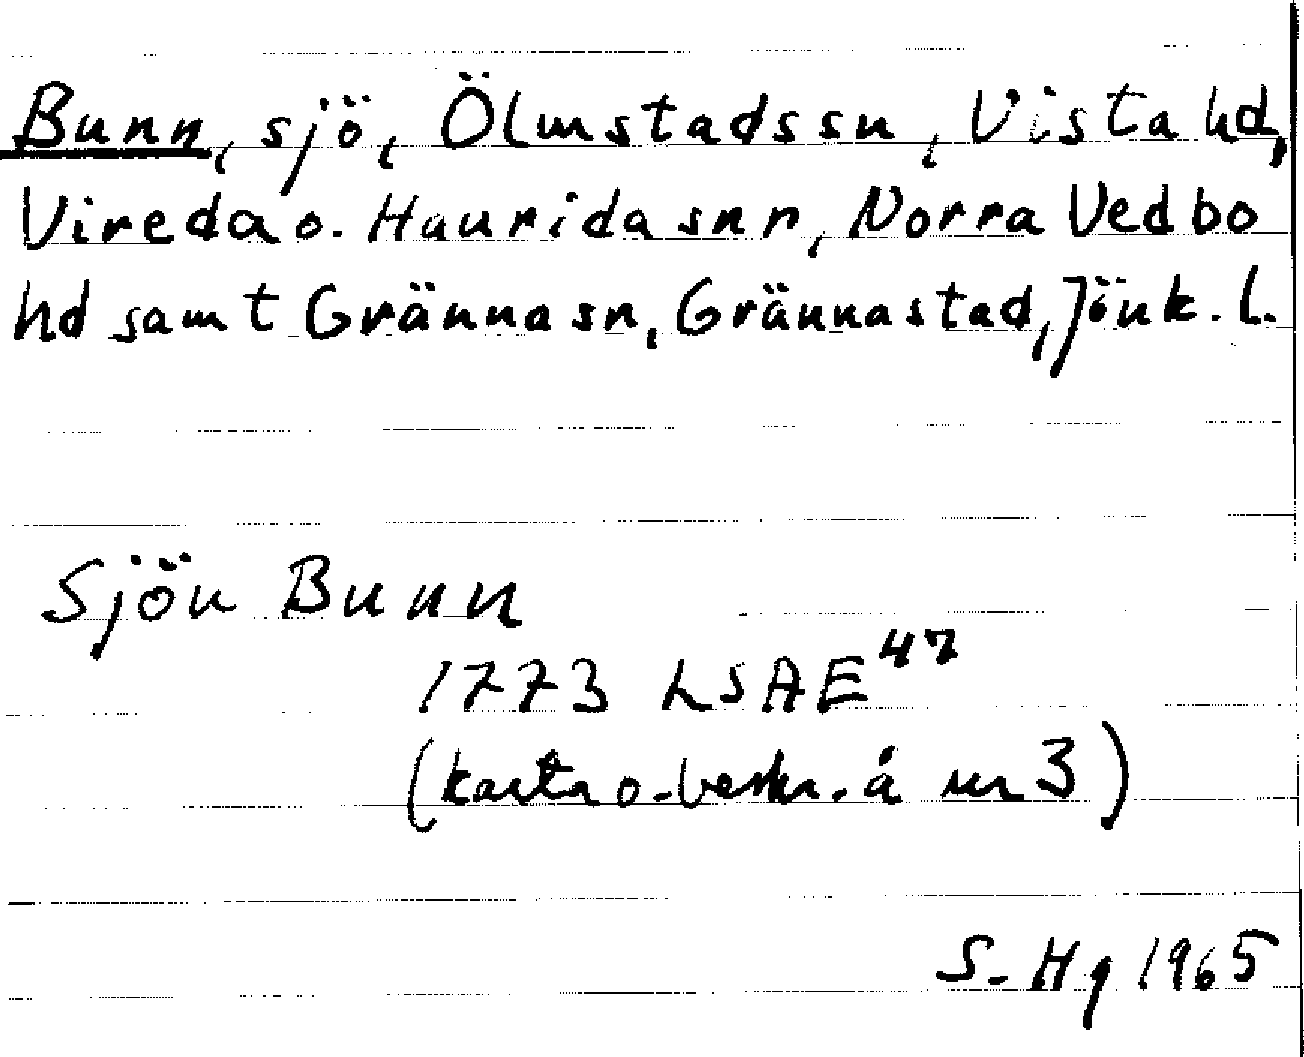 Bunn, sjö, Ölmstads sn, Vista hd,
Vireda o. Haurida snr, Norra Vedbo
hd samt Gränna sn, Gränna stad, Jönk. l.
Sjön Bunn
1773 LSA E 47
(karta o. beskr. å nr 3)
S. Hg 1965